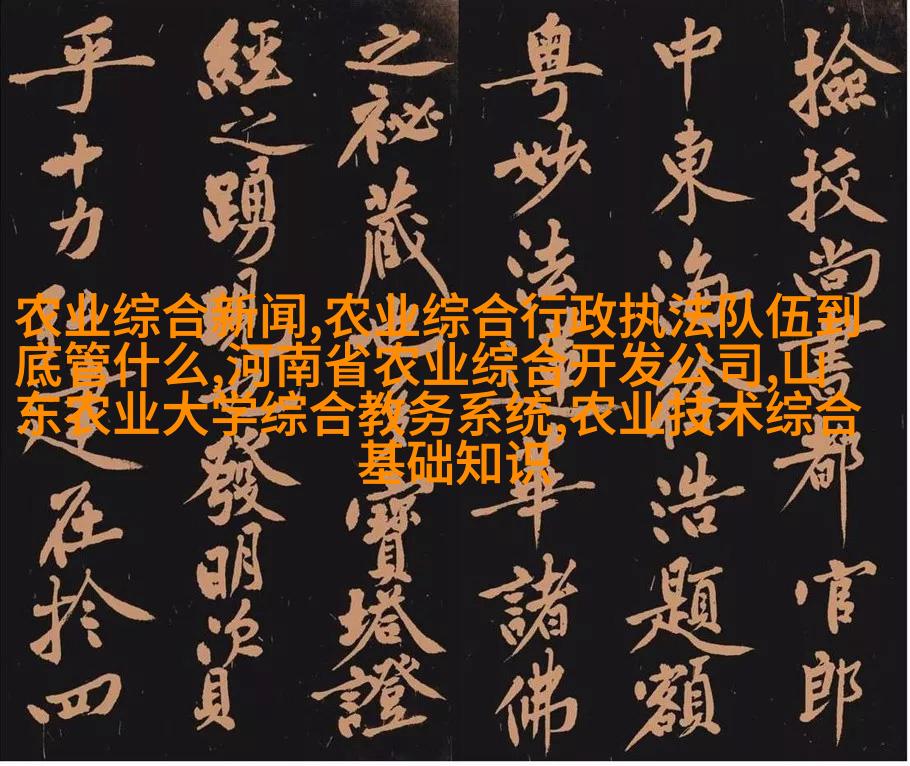 农业综合新闻,农业综合行政执法队伍到
底管什么,河南省农业综合开发公司,山
东农业大学综合教务系统,农业技术综合
基础知识
撿挍尚書都官郎
中東海徐浩題額
粤妙法蓮華諸佛
之祕藏也多寶塔證
經之踴現也發明資
乎十力建在於四